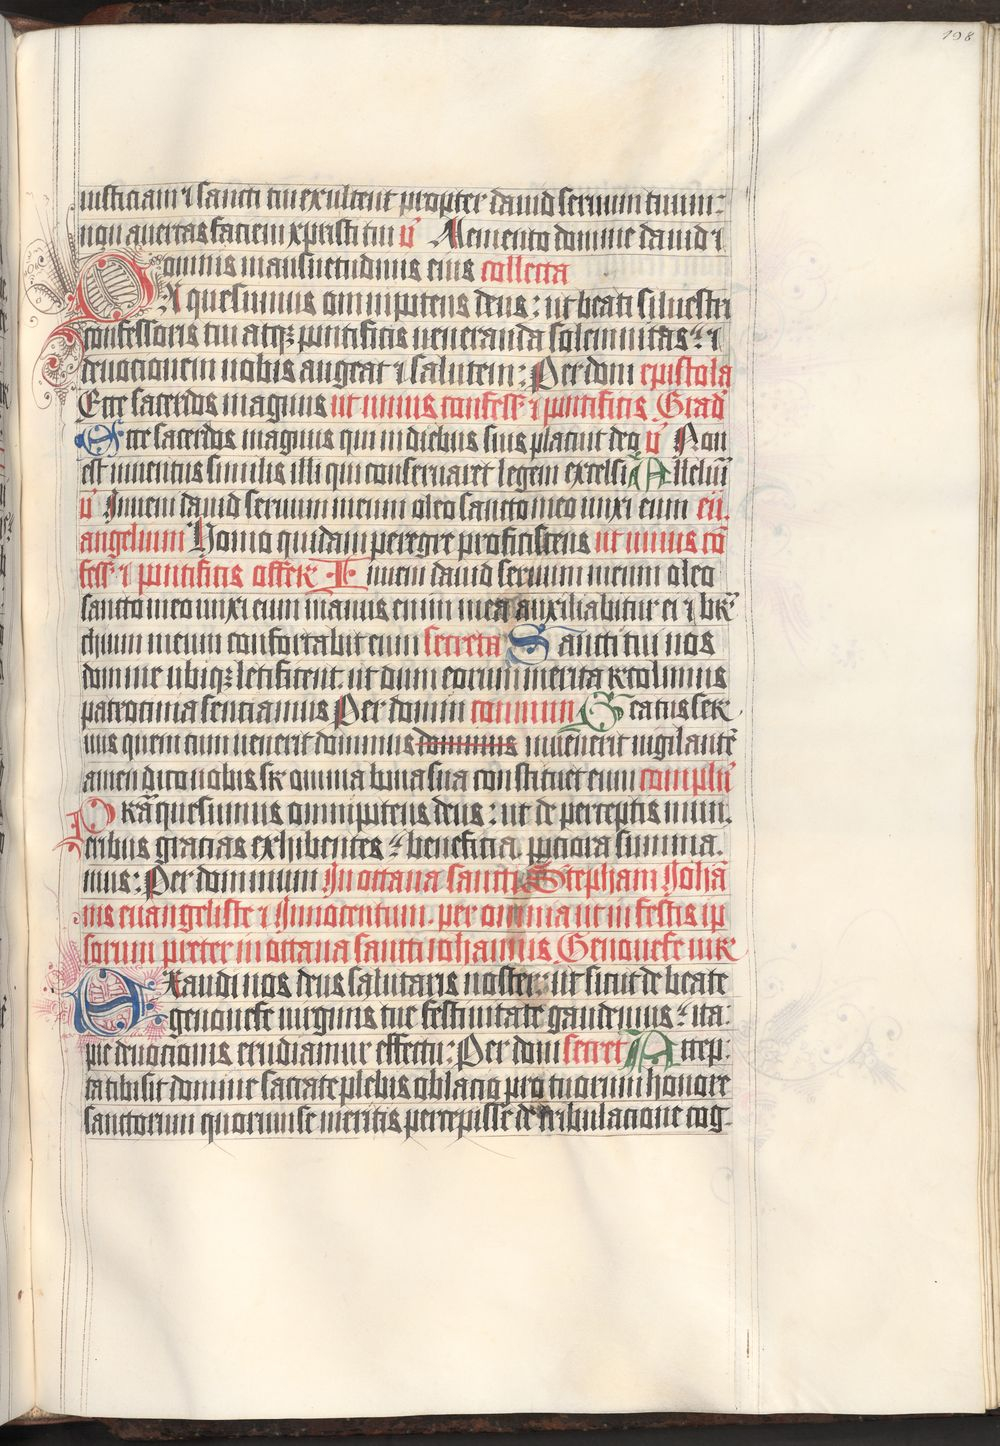 198
iusticiam ⁊ sancti tui exultent propter dauid seruum tuum:
non auertas faciem xpristi tui v̄ Memento domine dauid ⁊
omnis mansuetudinis eius collecta
DA quesumus omnipotens deus: ut beati siluestri
confessoris tui atqꝫ pontificis ueneranda solemnitas: ⁊
deuotionem nobis augeat ⁊ salutem: Per dom̄ epistola
Ecce sacerdos magnus ut unius confess̄ ⁊ pontificis Grad̄
Ecce sacerdos magnus qui in diebus suis placuit deo v̄ Non
est inuentus similis illi qui conseruaret legem excelsi Alleluī
v̄ Inueni dauid seruum meum oleo sancto meo unxi eum eu.
angelium Homo quidam peregre proficiscens ut unius cō
fess̄ ⁊ pontificis offer̄ Inueni dauid seruum meum oleo
sancto meo unxi eum manus enim mea auxiliabitur ei ⁊ br̄
chium meum confortabit eum secreta Sancti tui nos
domine ubiqꝫ letificent. ut dum eorum merita recolimus
patrocinia sentiamus Per domin̄ commun̄ Beatus ser
uus quem cum uenerit dominus dominus inuenerit uigilantē
amen dico uobis sr̄ omnia bona sua constituet eum complē
PRā quesumus omnipotens deus: ut de perceptis mun.
eribus gracias exhibentes: beneficia pociora summa.
mus: Per dominum In octaua sancti Stephani Johā
nis euangeliste ⁊ Innocentum. per omnia ut in festis ip
sorum preter in octaua sancti iohannis Genouefe uir̄
EXaudi nos deus salutaris noster: ut sicut de beate
genouefe uirginis tue festiuitate gaudemus: ita:
pie deuotionis erudiamur effectu: Per dom̄ secret̄ Accep:
ta tibi sit domine sacrate plebis oblacio pro tuorum honore
sanctorum quorum se meritis percepisse de tribulacione cog-